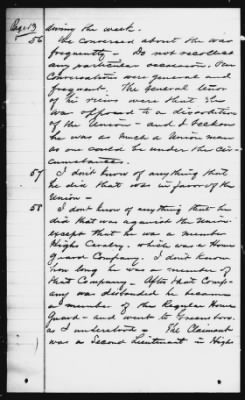 Page 13
during the week.
56 We conversed about the war
frequently - Do not recollect
any particular occasion. Our
Conversations were general and
frequent. The general tenor
of his views were that he
was opposed to a dissolution
of the Union - and I reckon
he was as much a Union man
as one could be under the cir-
cumstances.
57 I don't know of anything that
he did that was in favor of the
Union -
58 I don't know of anything that he
did that was against the Union
except that he was a member
Highs Cavalry. which was a Home
guard Company. I don't know
how long he was a member of
that Company - After that Comp-
any was disbanded he became
a member of the Regular Home
Guard - and went to Greensboro.
as I understood - The Claimant
was a Second Lieutenant in Highs